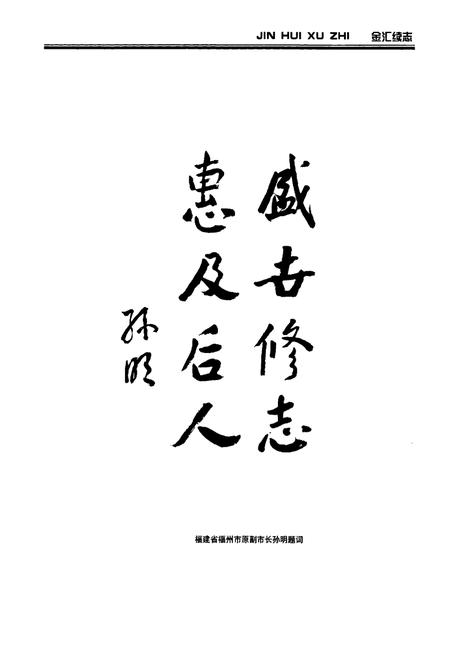 JIN HUI XU ZHI 金汇续志
盛世修志
惠及后人
孙明
福建省福州市原副市长孙明题词